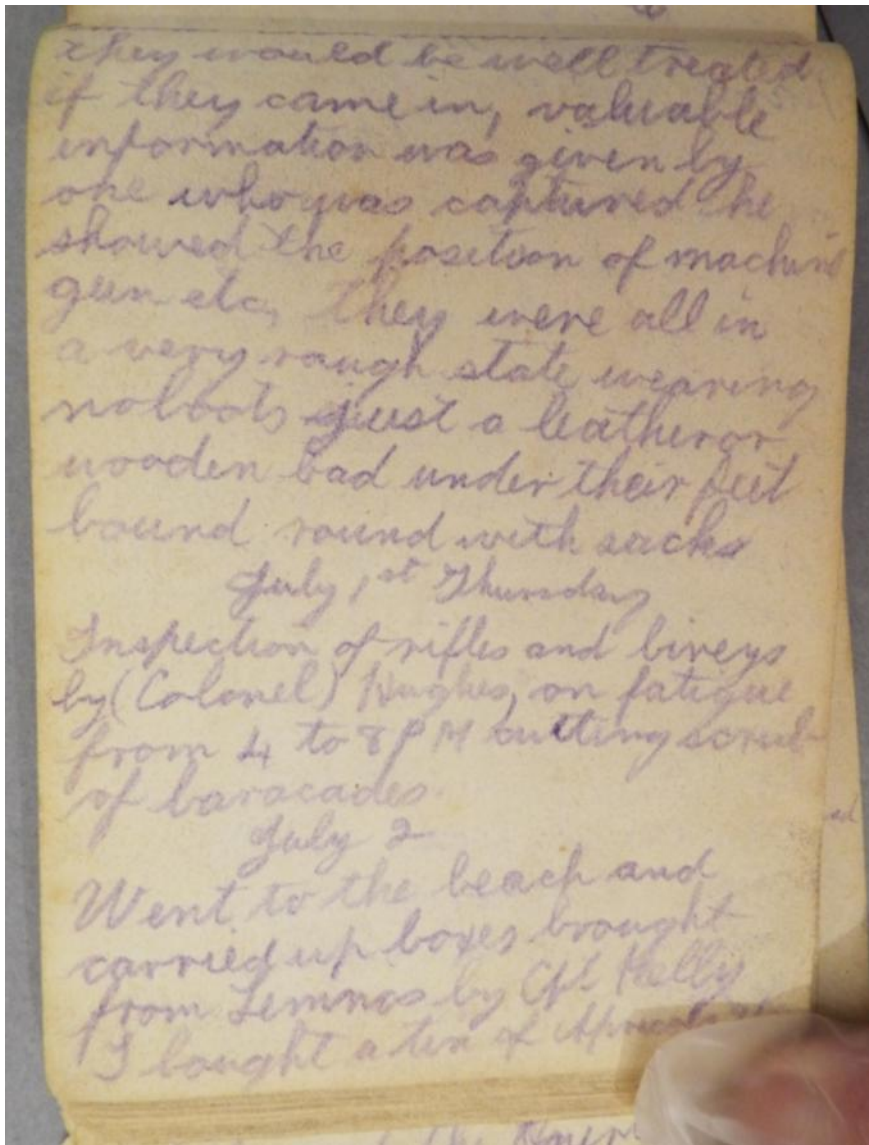 they would be well treated
if they came in, valuable
information was given by
one who was captured he
showed the position of machine
gun etc, they were all in
a very rough state wearing
no boots just a leather or
wooden bad under their feet
bound round with sacks
July 1st Thursday
Inspection of rifles and biveys
by (Colonel) Hughes, on fatigue
from 4 to 8 PM cutting scrub
of baracades.
July 2
Went to the beach and
carried up boxes brought
from Lemnos by Cpl Kelly
I bought a tin of Apricots
the